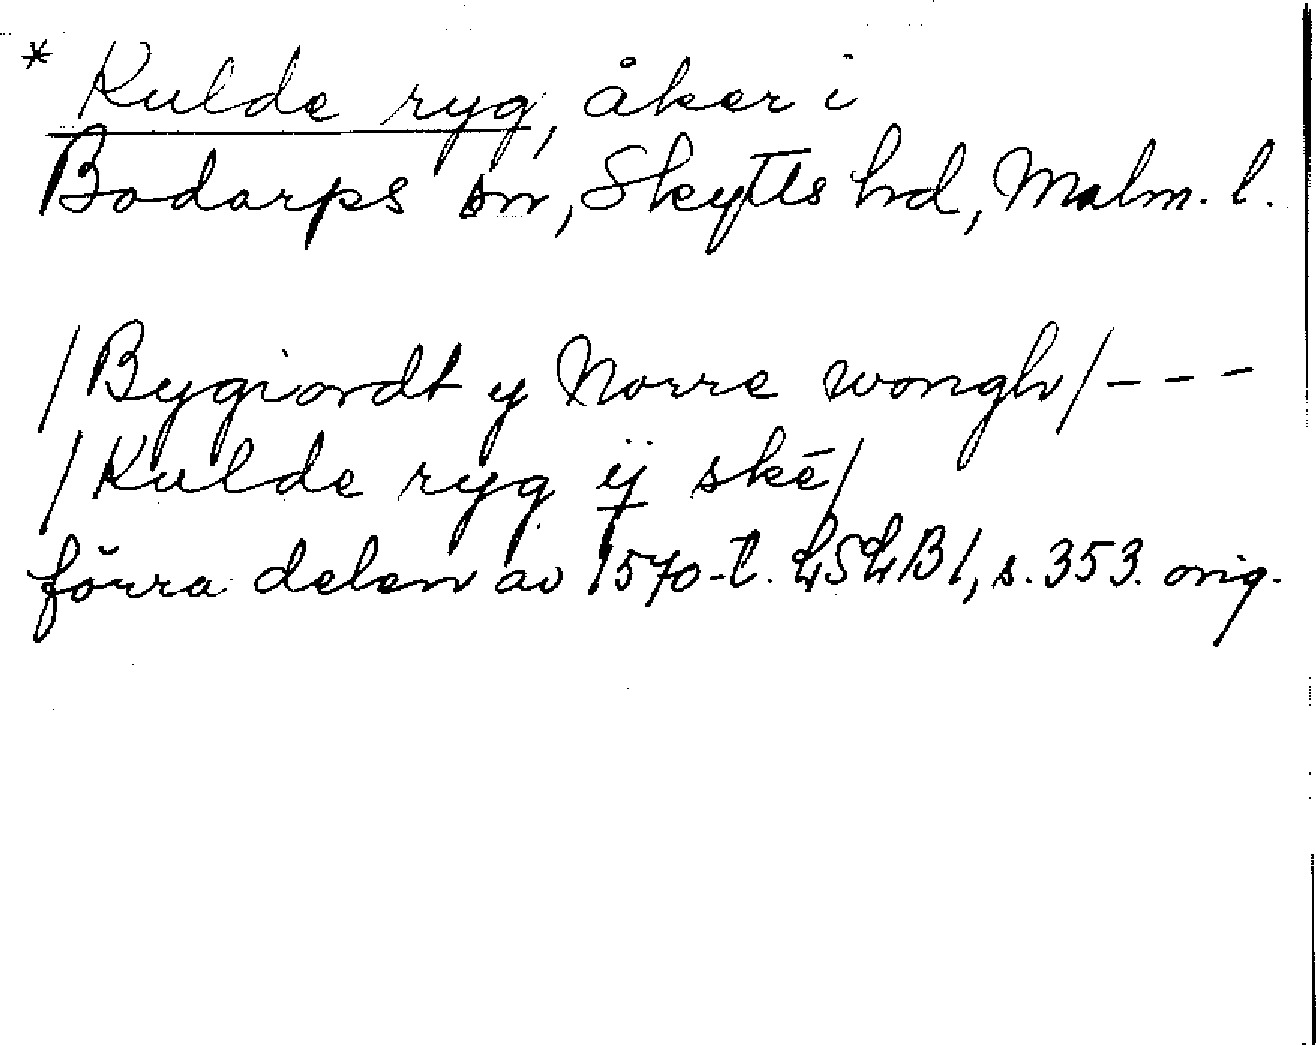 * Kulde ryg, åker i
Bodarps sn, Skytts hd, Malm. l.
/Bygiordt y Norre wongh/ - - -
/Kulde ryg ij skē/
förra delen av 1570-t. LSLB1, s. 353. orig.